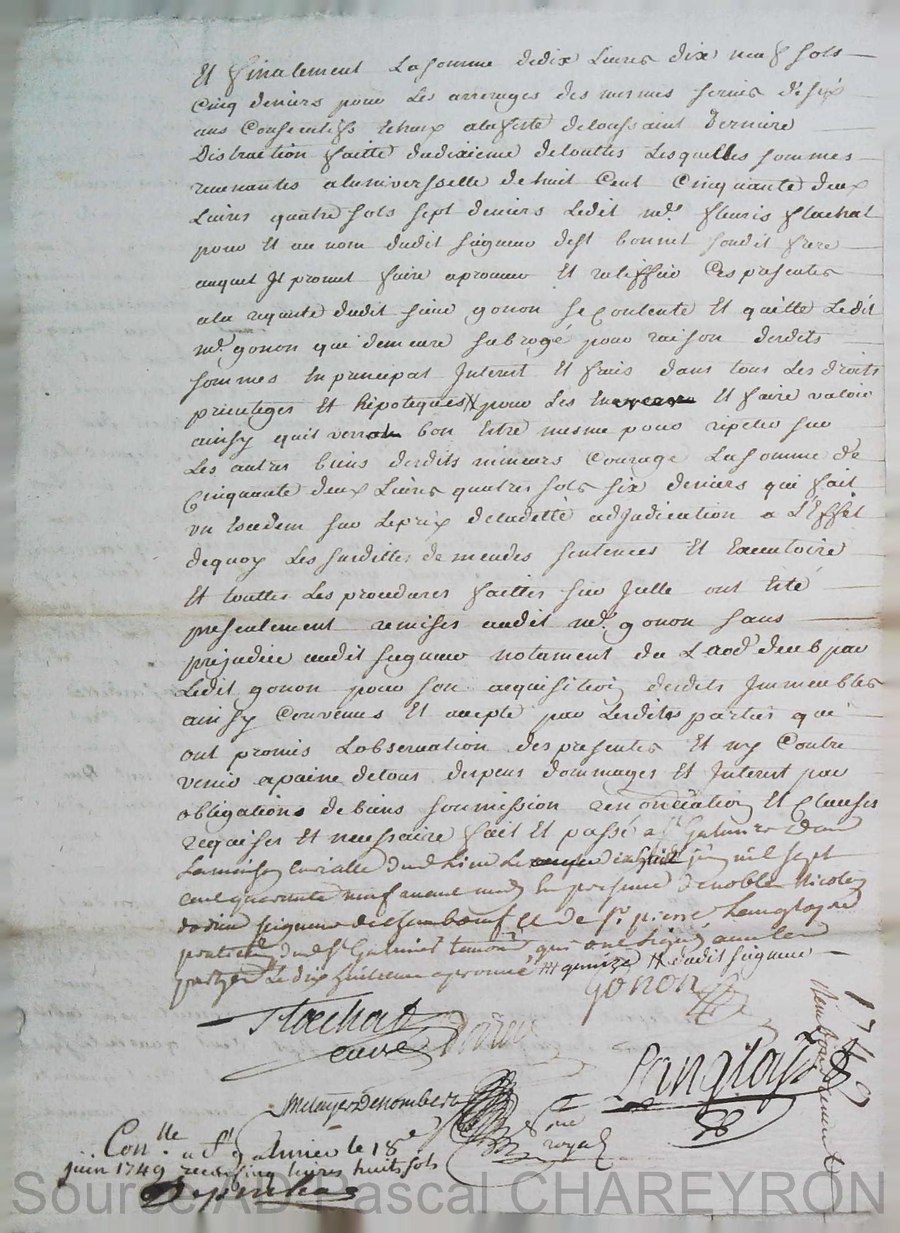 Et finalement la somme de dix livres dix neuf sols
cinq deniers pour les arrerages des mesmes servis de six
ans consecutifs echeux a la feste de toussaint derniere
Distraction faitte du dixieme de touttes lesquelles sommes
revenantes a luniverselle de huit cent cinquante deux
livres quatre sols sept deniers ledit mr. fleuris flachat
pour Et au nom dudit seigneur de st bonnet son dit frere
auquel Il promet faire aprouver Et ratiffier Ces presentes
a la requette dudit sieur gonon se contente Et quitte ledit
mr. gonon qui demeure subrogé pour raison desdits
sommes En principal Interest Et frais dans tous les droits
privileges Et hipoteques pour les Et faire valoir
ainsy quil verra bon Estre mesme pour repeter sur
les autres biens desdits mineurs Courage la somme de
Cinquante deux livres quatre sols six deniers qui fait
un Excedent sur le prix de ladette adjudication a l'Effet
dequoy les susdittes demandes sentences Et Executoire
Et touttes les procedures faittes sur Icelle ont Esté
presentement remises audit mr. gonon sans
prejudice audit seigneur notament du Laod deub par
ledit gonon pour son acquisition desdits Immeubles
ainsy convenus Et accepté par lesdittes parties qui
ont promis lobservation des presentes Et ny Contre
venir a paine de tous despens dommages Et Interest par
obligations de biens soumission renonciation Et Clauses
requises Et necessaire fait Et passé a st Galmier dans
la maison curialle dud lieu le juin mil sept
cent quarante neuf avant midy En presence de noble Nicolas
seigneur de Et de sr. pierre Langlogne
praticien dud st Galmier temoins qui ont signé avec les
parties le dix huitieme aprouvé quinze audit seigneur
gonon
flachat
curé
Langlogne
no re
royal
1749
Remboursement
Con.lle a st galmier le 18e
juin 1749 recu cinq livres huit sols
Source AD Pascal CHAREYRON